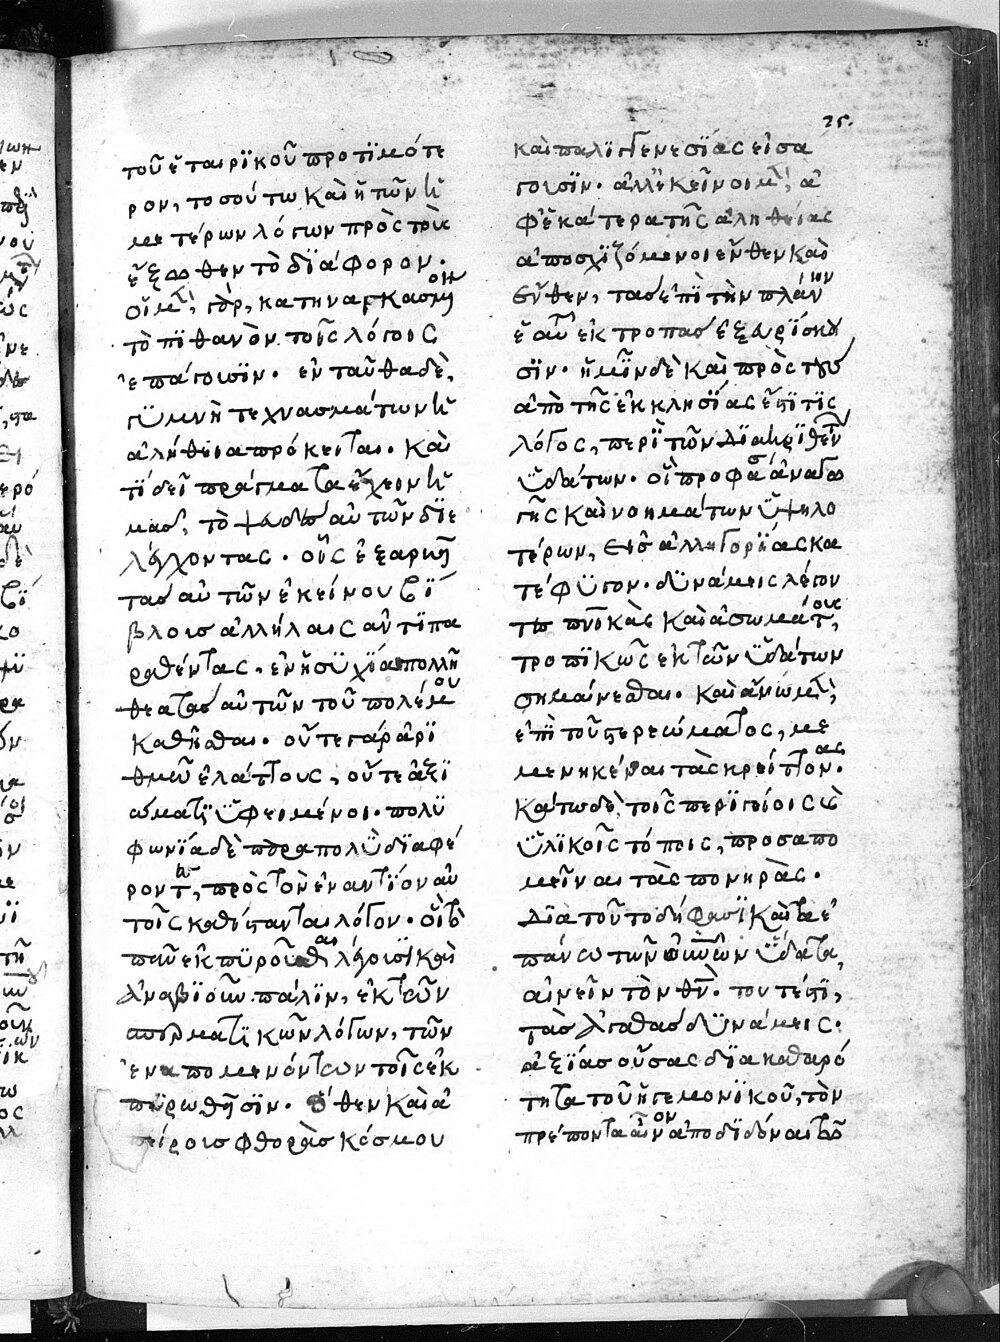 25.
τοῦ ἑταιρϊκοῦ προτϊμότε
ρον, τοσούτω καὶ ἡ τῶν ἡ
μετέρων λόγων πρὸς τοὺς
ἔξωθεν τὸ δϊάφορον.
οἱ μὲν γὰρ, κατηναγκασμένην
τὸ πϊθανὸν τοῖς λόγοις
ἐπάγουσϊν. ἐνταῦθα δὲ,
γϋμνὴ τεχνασμάτων ἡ
ἀλήθεια πρόκειται. καὶ
τϊ δεῖ πράγματα ἔχειν ἡ
μᾶς, τὸ ψεῦδος αὐτῶν δϊε
λέγχοντας. οἷς ἐξαρκεῖ
τὰς αὐτῶν ἐκείνου βϊ
βλους ἀλλήλαις ἀντϊπα
ραθέντας, ἐν ἡσϋχία πολλῆ
θεατὰς αὐτῶν τοῦ πολέμου
καθῆσθαι. οὔτε γὰρ ἀρϊ
θμῶ ἐλάττους, οὔτε ἀξϊ
ώματϊ ὑφειμένοι. πολϋ
φωνία δὲ παρα πολὺ δϊαφέ
ροντες, πρὸς τὸν ἐναντϊον αὐ
τοῖς καθίστανται λόγον. οἳ τὸ
πᾶν ἐκπϋροῦσθαι λέγουσϊ καὶ
ἀναβϊοῦν πάλϊν, ἐκ τῶν
σπερματϊκῶν λόγων, τῶν
ἐναπομενόντων τοῖς ἐκ
πϋρωθεῖσϊν. ὅθεν καὶ ἀ
πείρους φθορὰς κόσμου
καὶ παλϊγγενεσϊας εἰσά
γουσϊν. ἀλλ' ἐκεῖνοι μὲν, ἀ
φ' ἑκάτερα τῆς ἀληθείας
ἀποσχϊζόμενοι ἔνθεν καὶ
ἔνθεν, τὰς ἐπὶ τὴν πλάνην
ἑαυτοῖς ἐκτροπὰς ἐξευρϊσκου
σϊν. ἡμῖν δὲ καὶ πρὸς τοὺς
ἀπὸ τῆς ἐκκλησϊας ἐστϊ τϊς
λόγος, περὶ τῶν δϊακρϊθέντων
ὑδάτων. οἳ προφάσει ἀναγω
γῆς καὶ νοημάτων ὑψηλο
τέρων, εἰς ἀλληγορϊας κα
τέφϋγον. δϋνάμεις λέγον
τες πνϊκὰς καὶ ἀσωμάτους,
τροπϊκῶς ἐκ τῶν ὑδάτων
σημαίνεσθαι. καὶ ἄνω μὲν,
ἐπὶ τοῦ στερεώματος, με
μενηκέναι τὰς κρείττονας.
κάτω δὲ, τοῖς περϊγείοις καὶ
ὑλϊκοῖς τόποις, προσαπο
μεῖναι τὰς πονηράς.
δϊα τοῦτο δή φασϊ καὶ τὰ ἐ
πάνω τῶν οὐνῶν ὕδατα,
αἰνεῖν τὸν θν. τουτέστϊ,
τὰς ἀγαθὰς δϋνάμεις.
ἀξϊας οὔσας δϊα καθαρό
τητα τοῦ ἡγεμονϊκοῦ, τὸν
πρέποντα αἶνον ἀποδϊδόναι τῶ